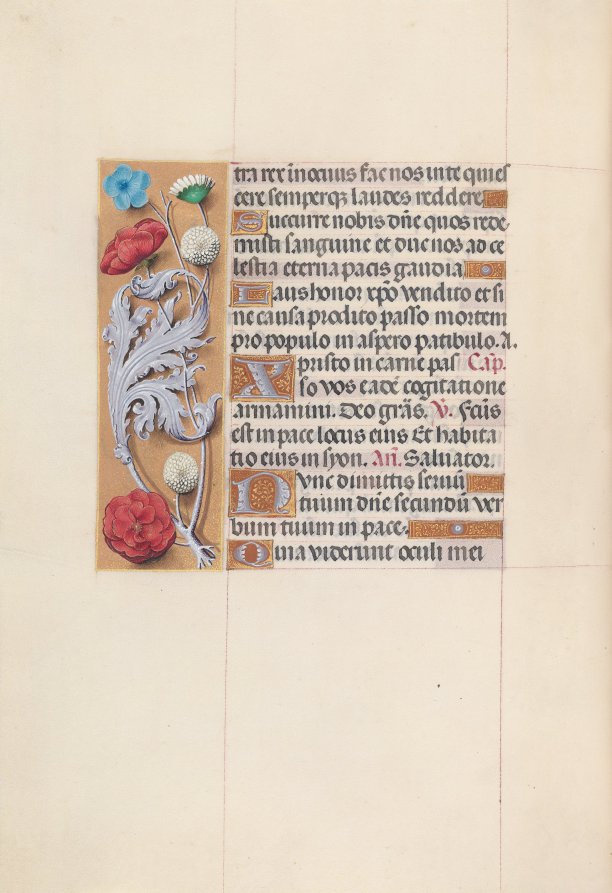 tra rex inocuus fac nos inte quies
cere semperq; laudes reddere
Sucurre nobis dñe quos rede
misti sanguine et duc nos ad ce
lestia eterna pacis gaudia
Laus honor xp̄o vendito et si
ne causa prodito passo mortem
pro populo in aspero patibulo. A.
Xpristo in carne pas Cap̄.
so vos eadē cogitatione
armamini. Deo grãs. V̄. Fctũs
est in pace locus eius Et habita
tio eius in syon. Añ. Saluator.
Nvnc dimittis seruũ
tuum dñe secundũ ver
bum tuum in pace.
Quia viderunt oculi mei